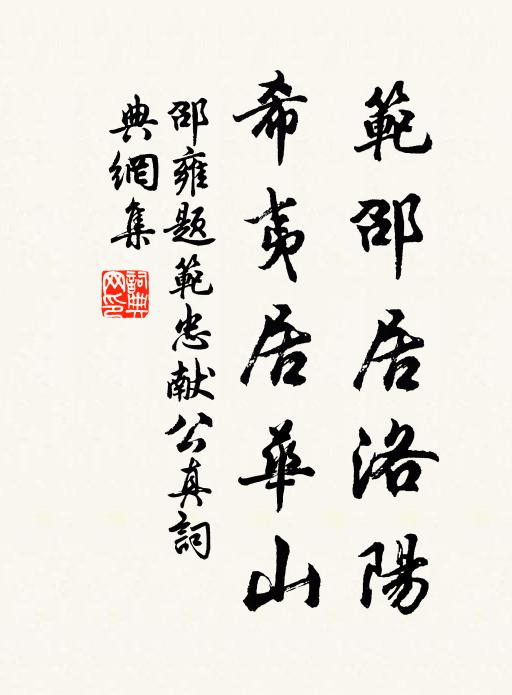 範邵居洛陽
希夷居華山
邵雍題範忠献公真詞
典網集
詞典網印